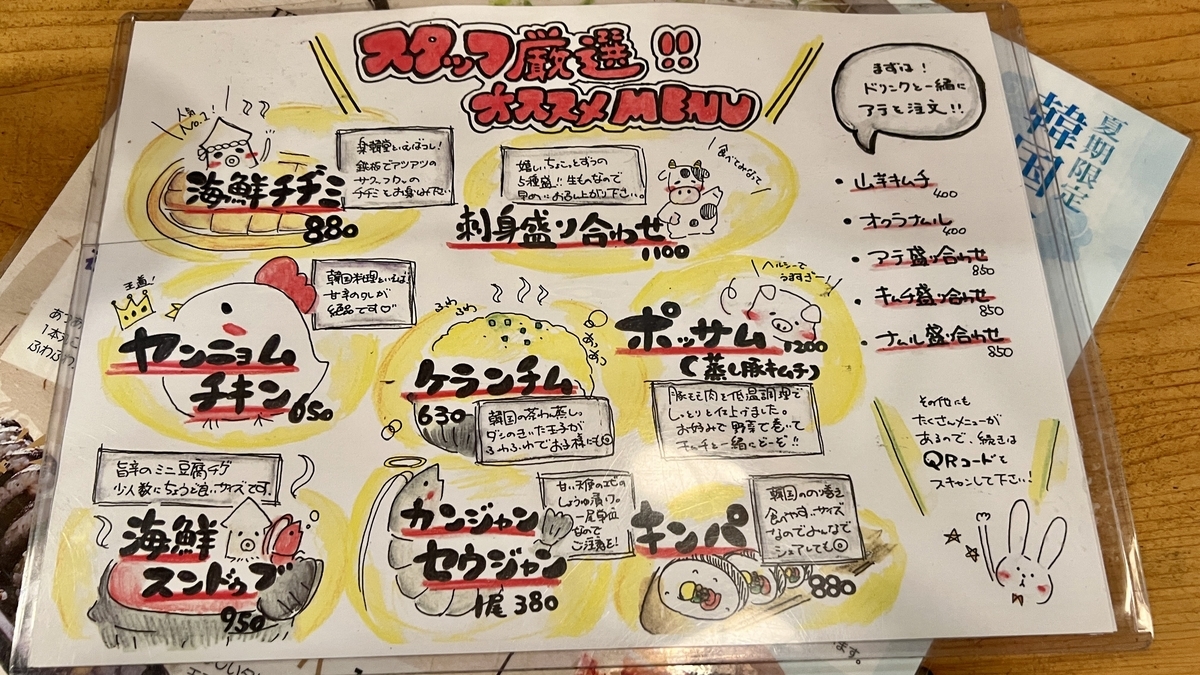 スタッフ厳選!!
オススメMENU
まずは!
ドリンクと一緒に
アテを注文!!
人気
No.2!
楽韓堂といえばコレ!
鉄板でアツアツの
サクフワの
チヂミをお楽しみ下さい
海鮮チヂミ
880
嬉しいちょこっとずつの
5種盛!!生ものなので
早めにお召し上がり下さい。
食べてみなって
刺身盛り合わせ
1100
・山芋キムチ
400
・オクラナムル
400
・アテ盛り合わせ
850
・キムチ盛り合わせ
850
・ナムル盛り合わせ
850
王道!
韓国料理といえば!
甘辛のタレが
絶品です♡
ヤンニョム
チキン 650
ふわふわ
ケランチム
630
韓国の茶わん蒸し。
ダシのきいた玉子が
ふわふわでお子様にも◎
ヘルシーで
うますぎー
ポッサム
1200
(蒸し豚キムチ)
豚もも肉を低温調理で
しっとりと仕上げました。
お好みで野菜で巻いて
キムチと一緒にどーぞ!!
その他にも
たくさんメニューが
あるので、続きは
QRコードを
スキャンして下さい!
旨辛のミニ豆腐チゲ
少人数にちょうど良いサイズです。
海鮮
スンドゥブ
950
甘い天使のエビの
しょうゆ漬け。
一尾単位
なので
ご注意を!
カンジャン
セウジャン
1尾 380
韓国ののり巻き
食べやすいサイズ
なのでみんなで
シェアしても◎
キンパ
880
夏期限定
韓国